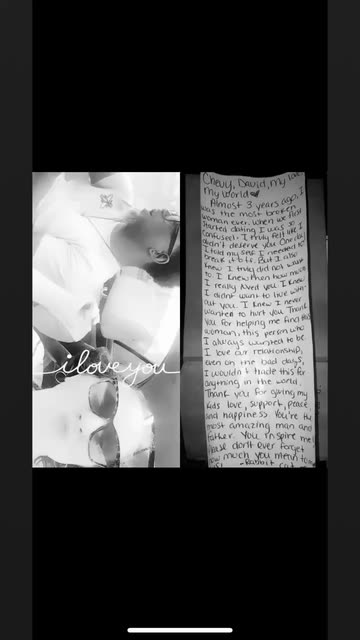 i love you
Chevy, David, my love,
my world
Almost 3 years ago, I
was the most broken
woman ever. When we first
started dating I was so
confused. I truly felt like I
didn't deserve you. One day
I told my self I needed to
break it off. But I also
knew I truly did not want
to. I knew then how much
I really loved you. I knew
I didn't want to live with
out you. I knew I never
wanted to hurt you. Thank
you for helping me find this
woman, this person who
I always wanted to be.
I love our relationship,
even on the bad days,
I wouldn't trade this for
anything in the world.
Thank you for giving my
kids love, support, peace
and happiness. You're the
most amazing man and
father. You inspire me!
Please don't ever forget
how much you mean to
-Rabbit